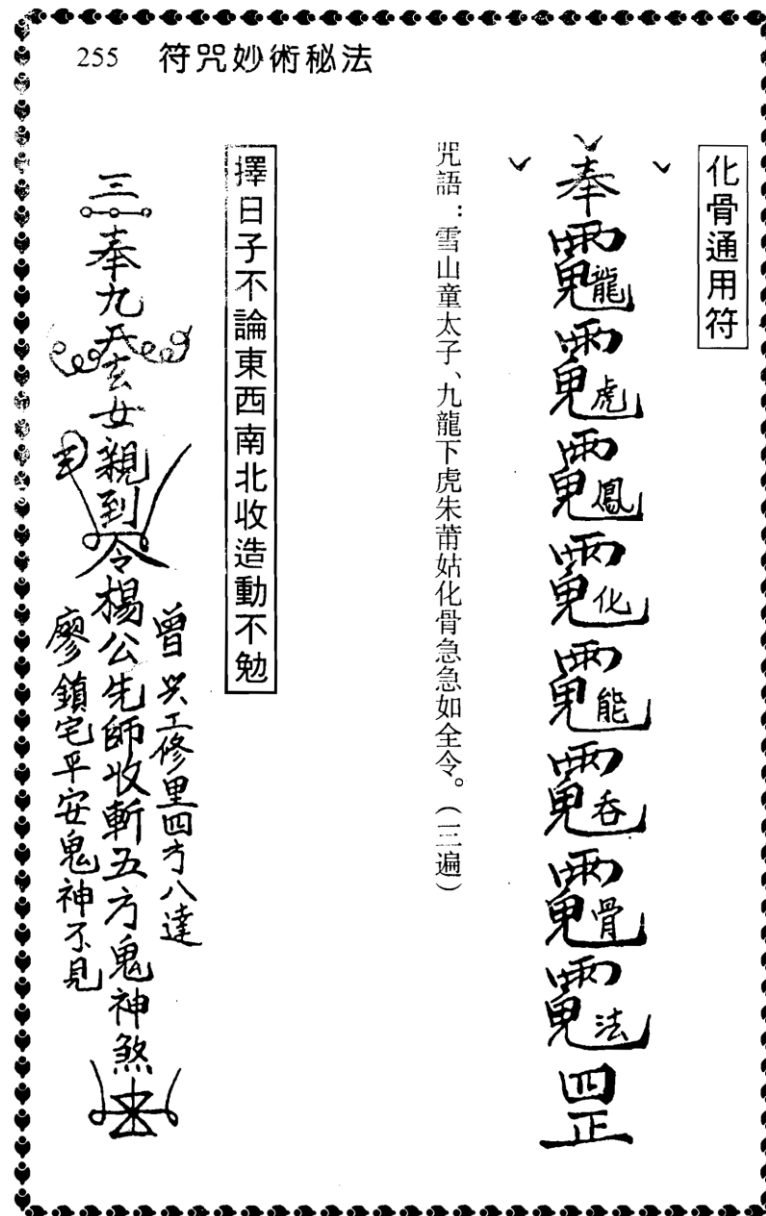 255 符咒妙術秘法
化骨通用符
奉
龍
虎
鳳
化
能
吞
骨
法
罡
咒語：雪山童太子、九龍下虎朱莆姑化骨急急如全令。（三遍）
擇日子不論東西南北收造動不勉
曾 興工修里四方八達
三奉九天玄女親到令楊公先師收斬五方鬼神煞
廖鎮宅平安鬼神不見